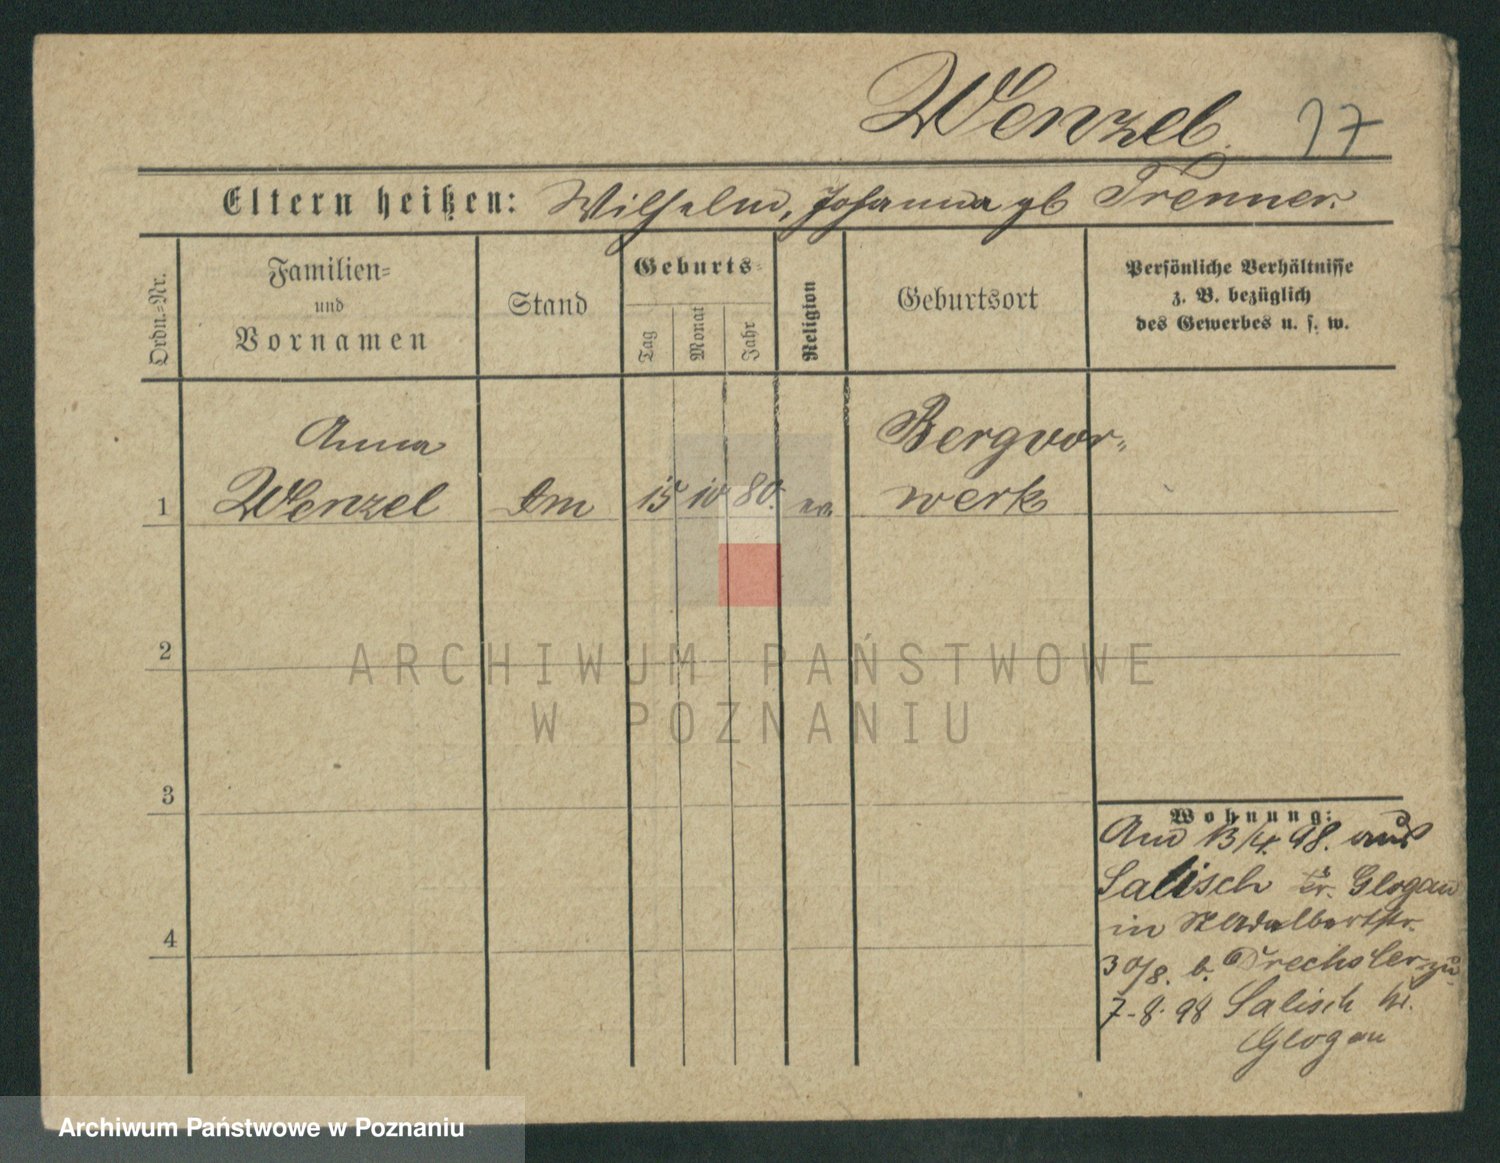 Wenzel. 17
Eltern heißen: Wilhelm, Johanna gb Trenner.
Ordn.=Nr.
Familien=
und
Vornamen
Stand
Geburts=
Tag
Monat
Jahr
Religion
Geburtsort
Persönliche Verhältnisse
z. B. bezüglich
des Gewerbes u. s. w.
Anna Bergvor=
1 Wenzel 15 10 80. ev werk
2
3
4
Wohnung:
13/4. 98. aus
Salisch Kr. Glogau
in St Adalbertstr.
30/8. b. Drechsler zu
7-8. 98 Salisch Kr.
Glogau
ARCHIWUM PAŃSTWOWE
W POZNANIU
Archiwum Państwowe w Poznaniu